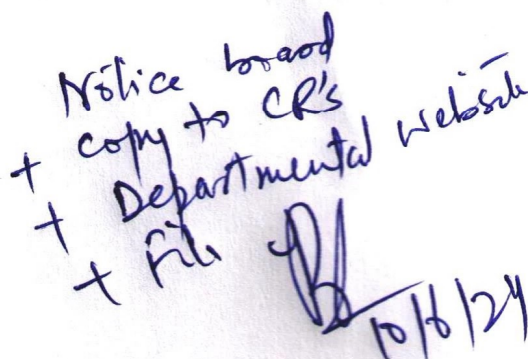 Notice board
+ copy to CR's
+ Departmental website
+ File
10/6/24